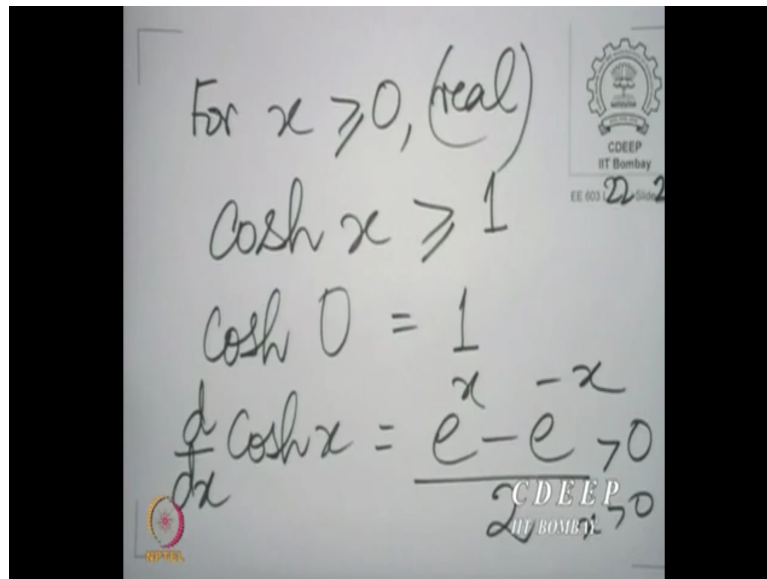 For x ⩾ 0, (real)
CDEEP
IIT Bombay
EE 603 L 22 Slide 2
cosh x ⩾ 1
cosh 0 = 1
d/dx cosh x = (e^x − e^−x)/2 > 0
x > 0
CDEEP
IIT BOMBAY
NPTEL